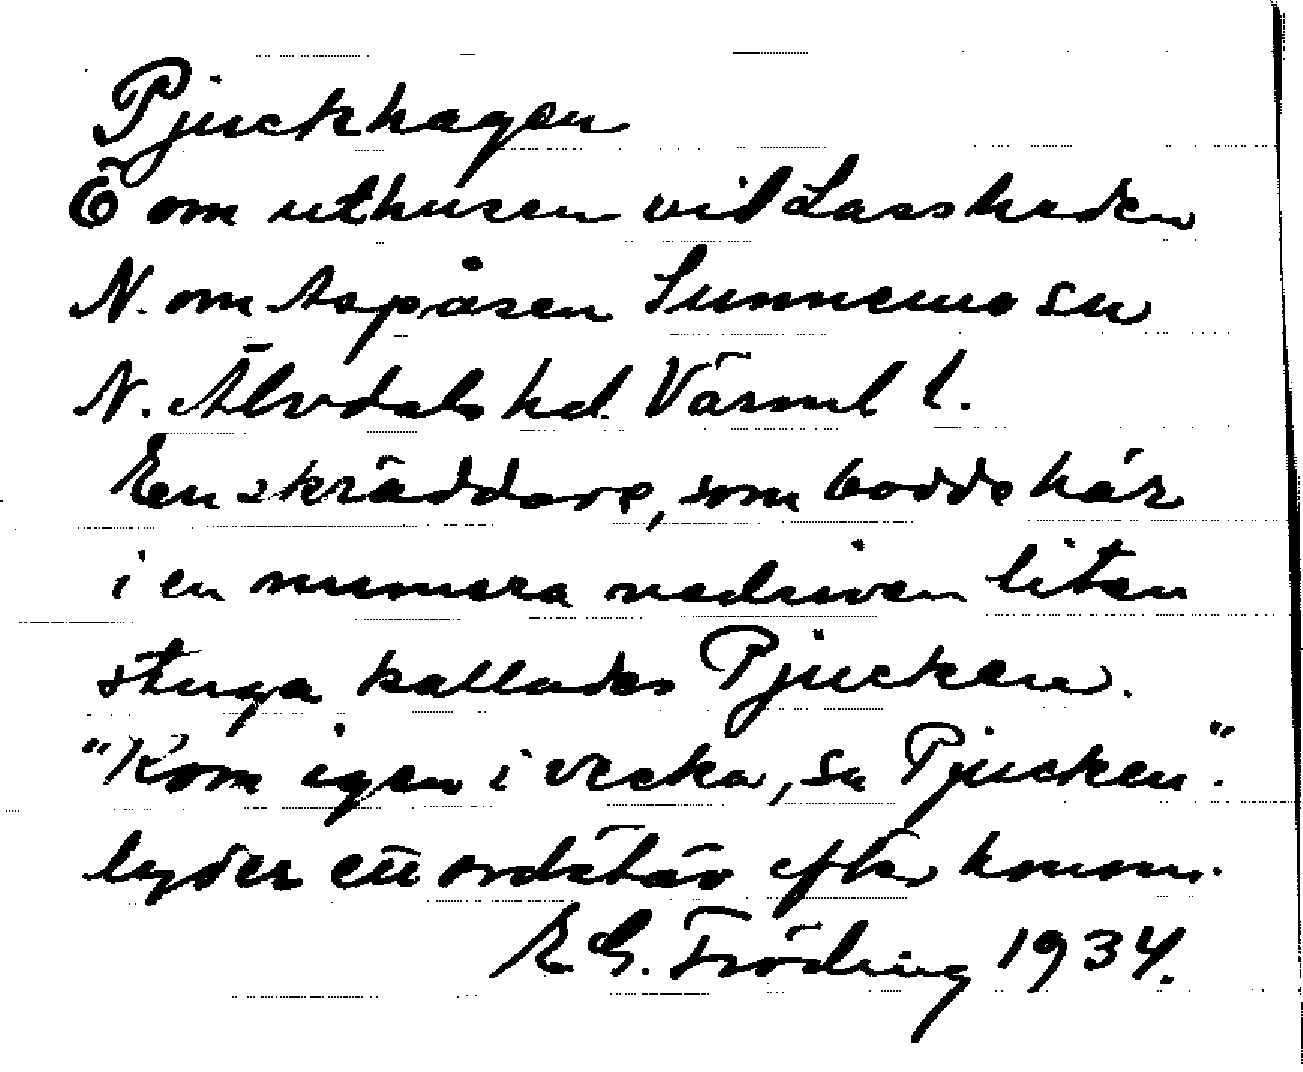 Pjuckhagen
Ö om uthusen vid Lassheden
N. om Aspåsen Sunnemo sn
N. Älvdals hd. Värml l.
En skräddare, som bodde här
i en numera nedriven liten
stuga kallades Pjucken.
"Kom igen i vecka, sa Pjucken".
lyder ett ordstäv efter honom.
E G. Fröding 1934.